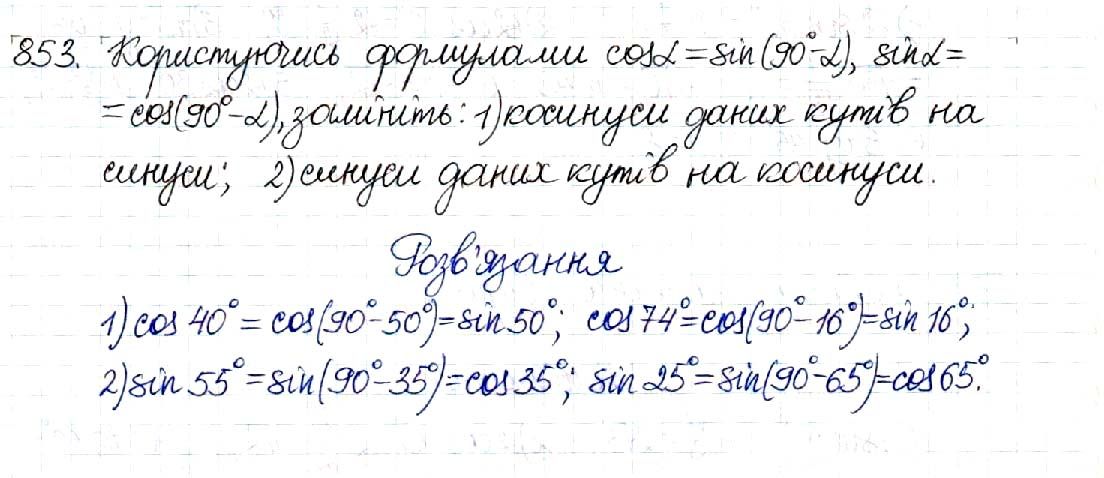 853. Користуючись формулами cosα = sin(90°-α), sinα =
= cos(90°-α), замініть: 1) косинуси даних кутів на
синуси; 2) синуси даних кутів на косинуси.
Розв'язання
1) cos 40° = cos(90°-50°) = sin 50°; cos 74° = cos(90°-16°) = sin 16°;
2) sin 55° = sin(90°-35°) = cos 35°; sin 25° = sin(90°-65°) = cos 65°.